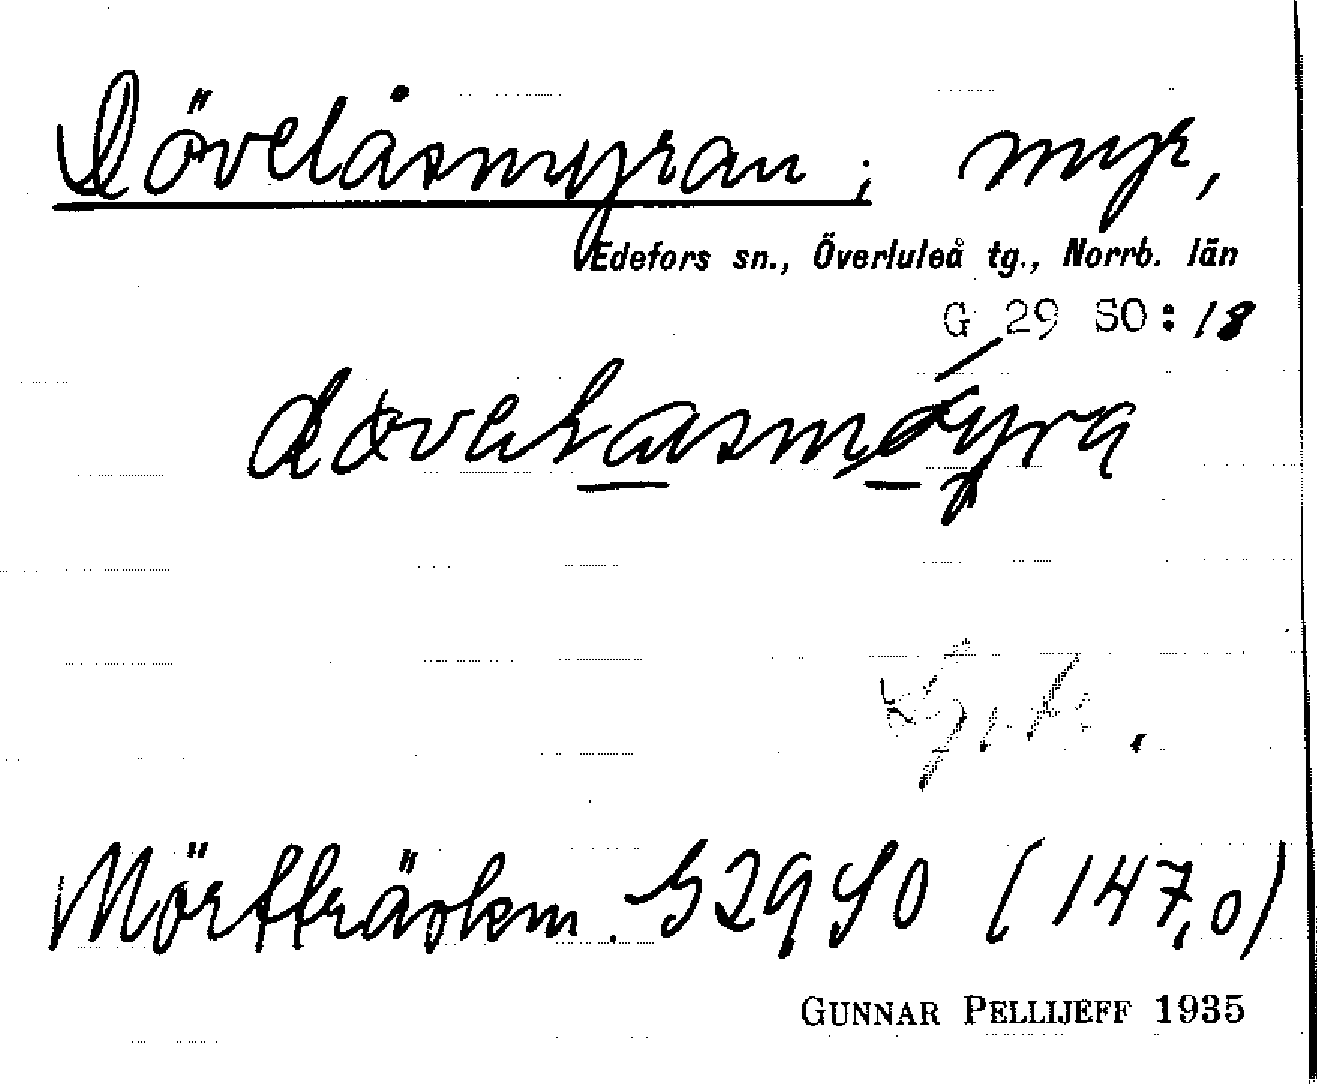 Dövelåsmyran; myr,
Edefors sn., Överluleå tg., Norrb. län
G 29 SO: 18
Mörtträskm. G29 SO (147,0)
GUNNAR PELLIJEFF 1935